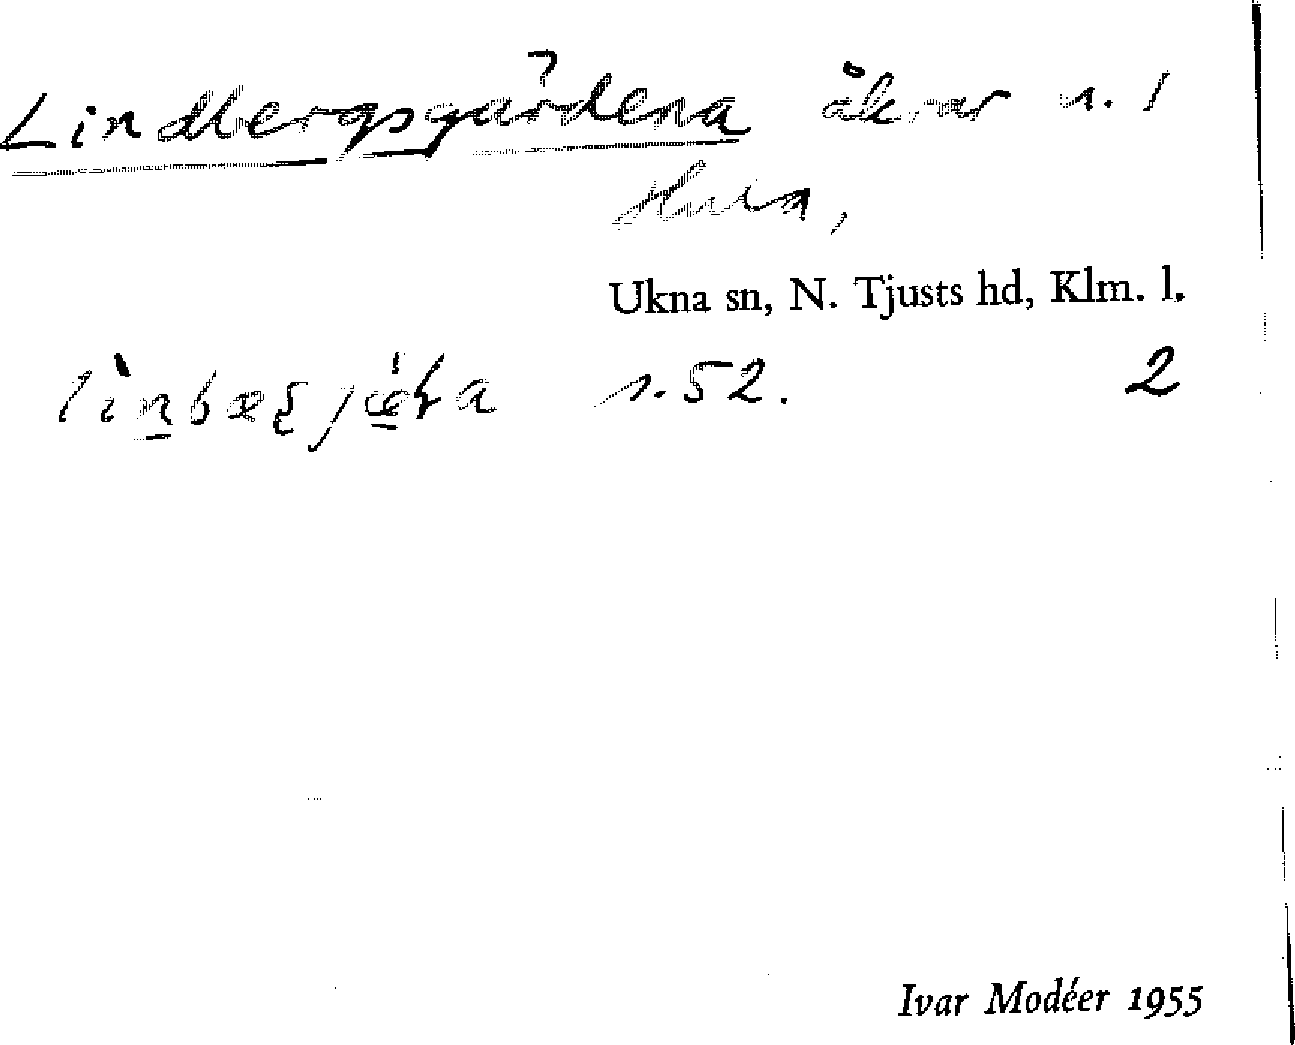 Lindbergsgärdena åkrar n. 1
Hula,
Ukna sn, N. Tjusts hd, Klm. l.
s. 52. 2
Ivar Modéer 1955